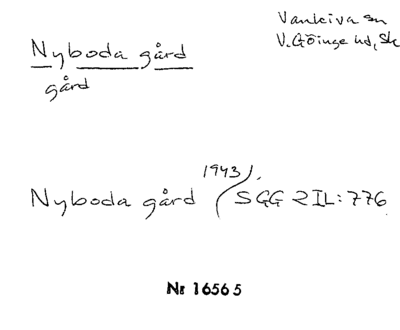 Vankiva sn
V. Göinge hd, Sk
Nyboda gård
gård
1943
Nyboda gård / SGG 2IL: 776
Nr 16565